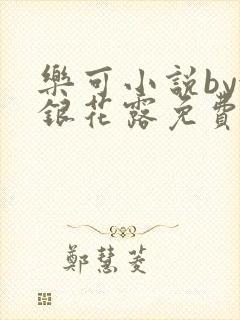 樂可小説by
銀花露免費
鄭慧菱